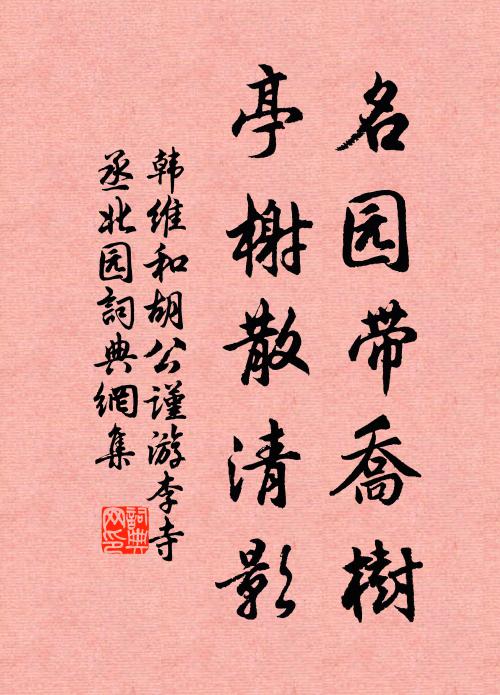 名园带乔樹
亭榭散清影
韩维和胡公谨游李寺
丞北园詞典網集
詞典
网印